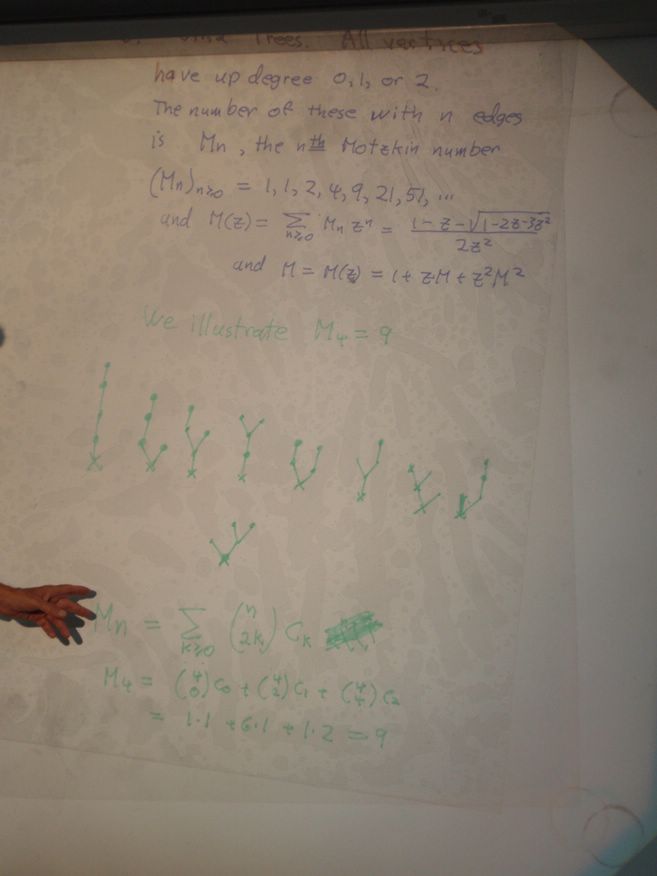 Trees. All vertices
have up degree 0, 1, or 2.
The number of these with n edges
is Mn, the nth Motzkin number
(Mn)n≥0 = 1, 1, 2, 4, 9, 21, 51, ...
and M(z) = ∑n≥0 Mn zⁿ = (1 - z - √(1-2z-3z²)) / 2z²
and M = M(z) = 1 + zM + z²M²
We illustrate M₄ = 9
Mn = ∑k≥0 (n 2k) Ck
M₄ = (4 0) C₀ + (4 2) C₁ + (4 4) C₂
= 1·1 + 6·1 + 1·2 = 9